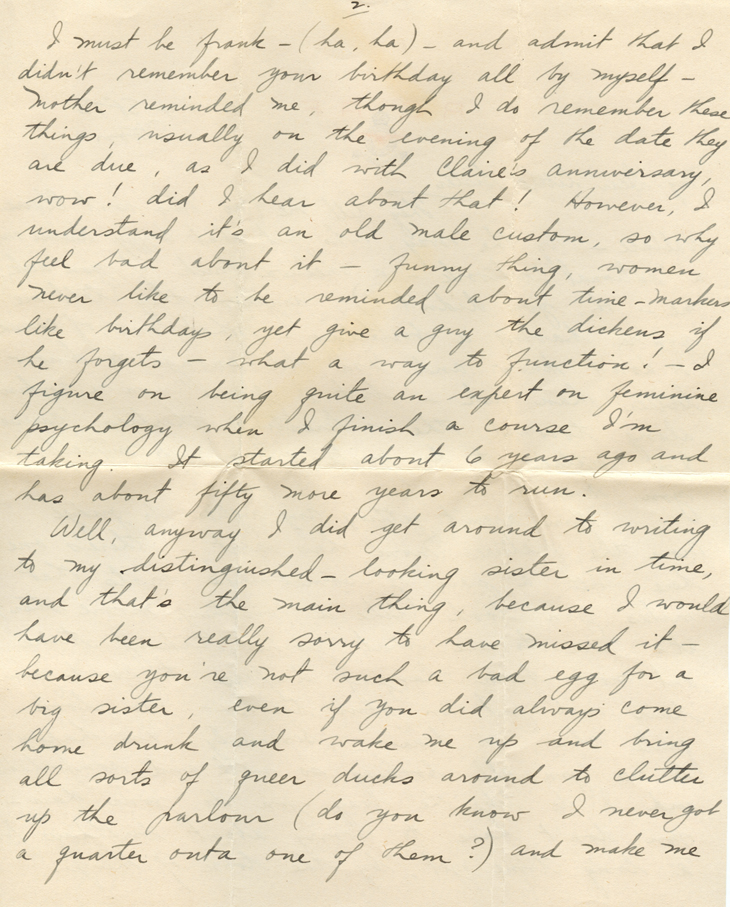 2.
I must be frank - (ha, ha) - and admit that I
didn't remember your birthday all by myself -
Mother reminded me, though I do remember these
things, usually on the evening of the date they
are due, as I did with Claire's anniversary,
wow! did I hear about that! However, I
understand it's an old male custom, so why
feel bad about it - funny thing, women
never like to be reminded about time-markers
like birthdays, yet give a guy the dickens if
he forgets - what a way to function! - I
figure on being quite an expert on feminine
psychology when I finish a course I'm
taking. It started about 6 years ago and
has about fifty more years to run.
Well, anyway I did get around to writing
to my distinguished-looking sister in time,
and that's the main thing, because I would
have been really sorry to have missed it -
because you're not such a bad egg for a
big sister, even if you did always come
home drunk and wake me up and bring
all sorts of queer ducks around to clutter
up the parlour (do you know I never got
a quarter outa one of them?) and make me